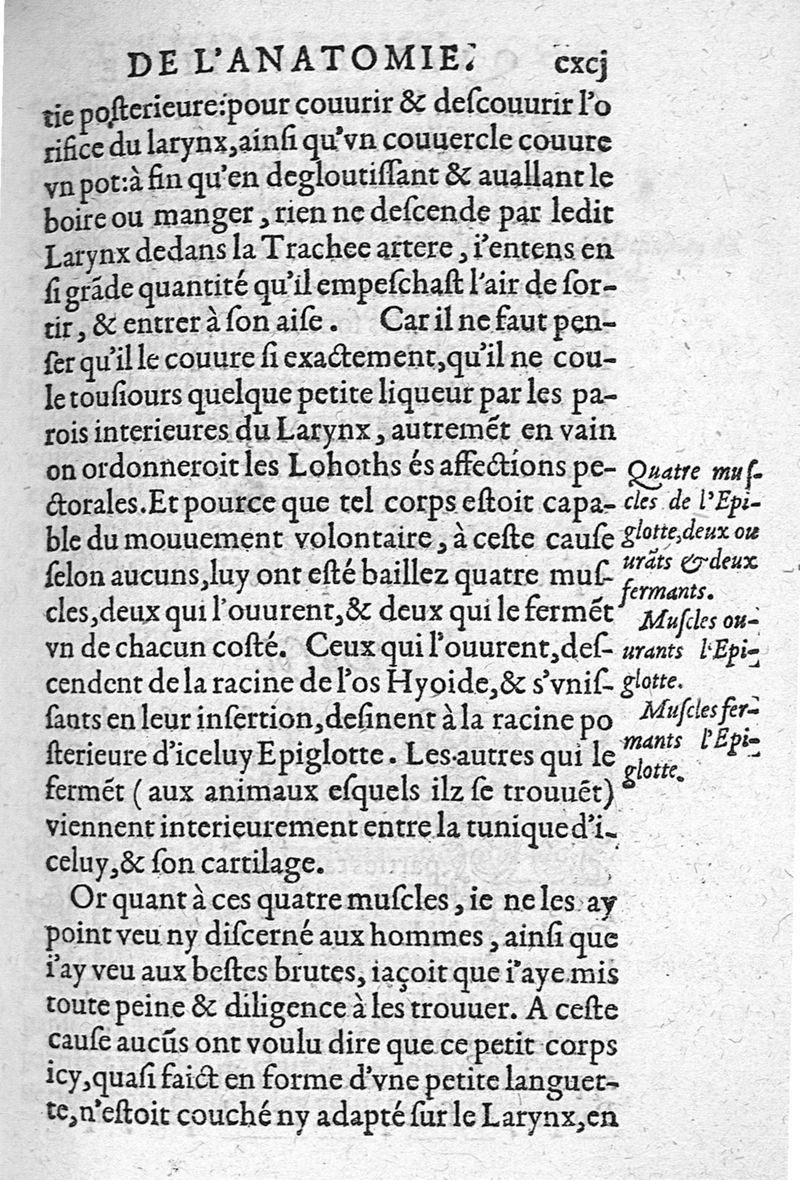 DE L'ANATOMIE. cxcj
tie poſterieure: pour couurir & deſcouurir l'o
rifice du larynx, ainſi qu'vn couuercle couure
vn pot: à fin qu'en degloutiſſant & auallant le
boire ou manger, rien ne deſcende par ledit
Larynx dedans la Trachee artere, i'entens en
ſi grãde quantité qu'il empeſchaſt l'air de ſor-
tir, & entrer à ſon aiſe. Car il ne faut pen-
ſer qu'il le couure ſi exactement, qu'il ne cou-
le touſiours quelque petite liqueur par les pa-
rois interieures du Larynx, autremẽt en vain
on ordonneroit les Lohoths és affections pe-
ctorales. Et pource que tel corps eſtoit capa-
ble du mouuement volontaire, à ceſte cauſe
ſelon aucuns, luy ont eſté baillez quatre muſ-
cles, deux qui l'ouurent, & deux qui le fermẽt
vn de chacun coſté. Ceux qui l'ouurent, deſ-
cendent de la racine de l'os Hyoide, & s'vniſ-
ſants en leur inſertion, deſinent à la racine po
ſterieure d'iceluy Epiglotte. Les autres qui le
fermẽt (aux animaux eſquels ilz ſe trouuẽt)
viennent interieurement entre la tunique d'i-
celuy, & ſon cartilage.
Or quant à ces quatre muſcles, ie ne les ay
point veu ny diſcerné aux hommes, ainſi que
i'ay veu aux beſtes brutes, iaçoit que i'aye mis
toute peine & diligence à les trouuer. A ceſte
cauſe aucũs ont voulu dire que ce petit corps
icy, quaſi faict en forme d'vne petite languet-
te, n'eſtoit couché ny adapté ſur le Larynx, en
Quatre muſ-
cles de l'Epi-
glotte, deux ou
urãts & deux
fermants.
Muſcles ou-
urants l'Epi-
glotte.
Muſcles fer-
mants l'Epi-
glotte.